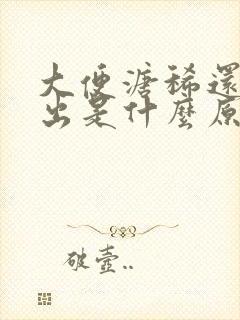 大便溏稀還
出是什麼原
破壺..